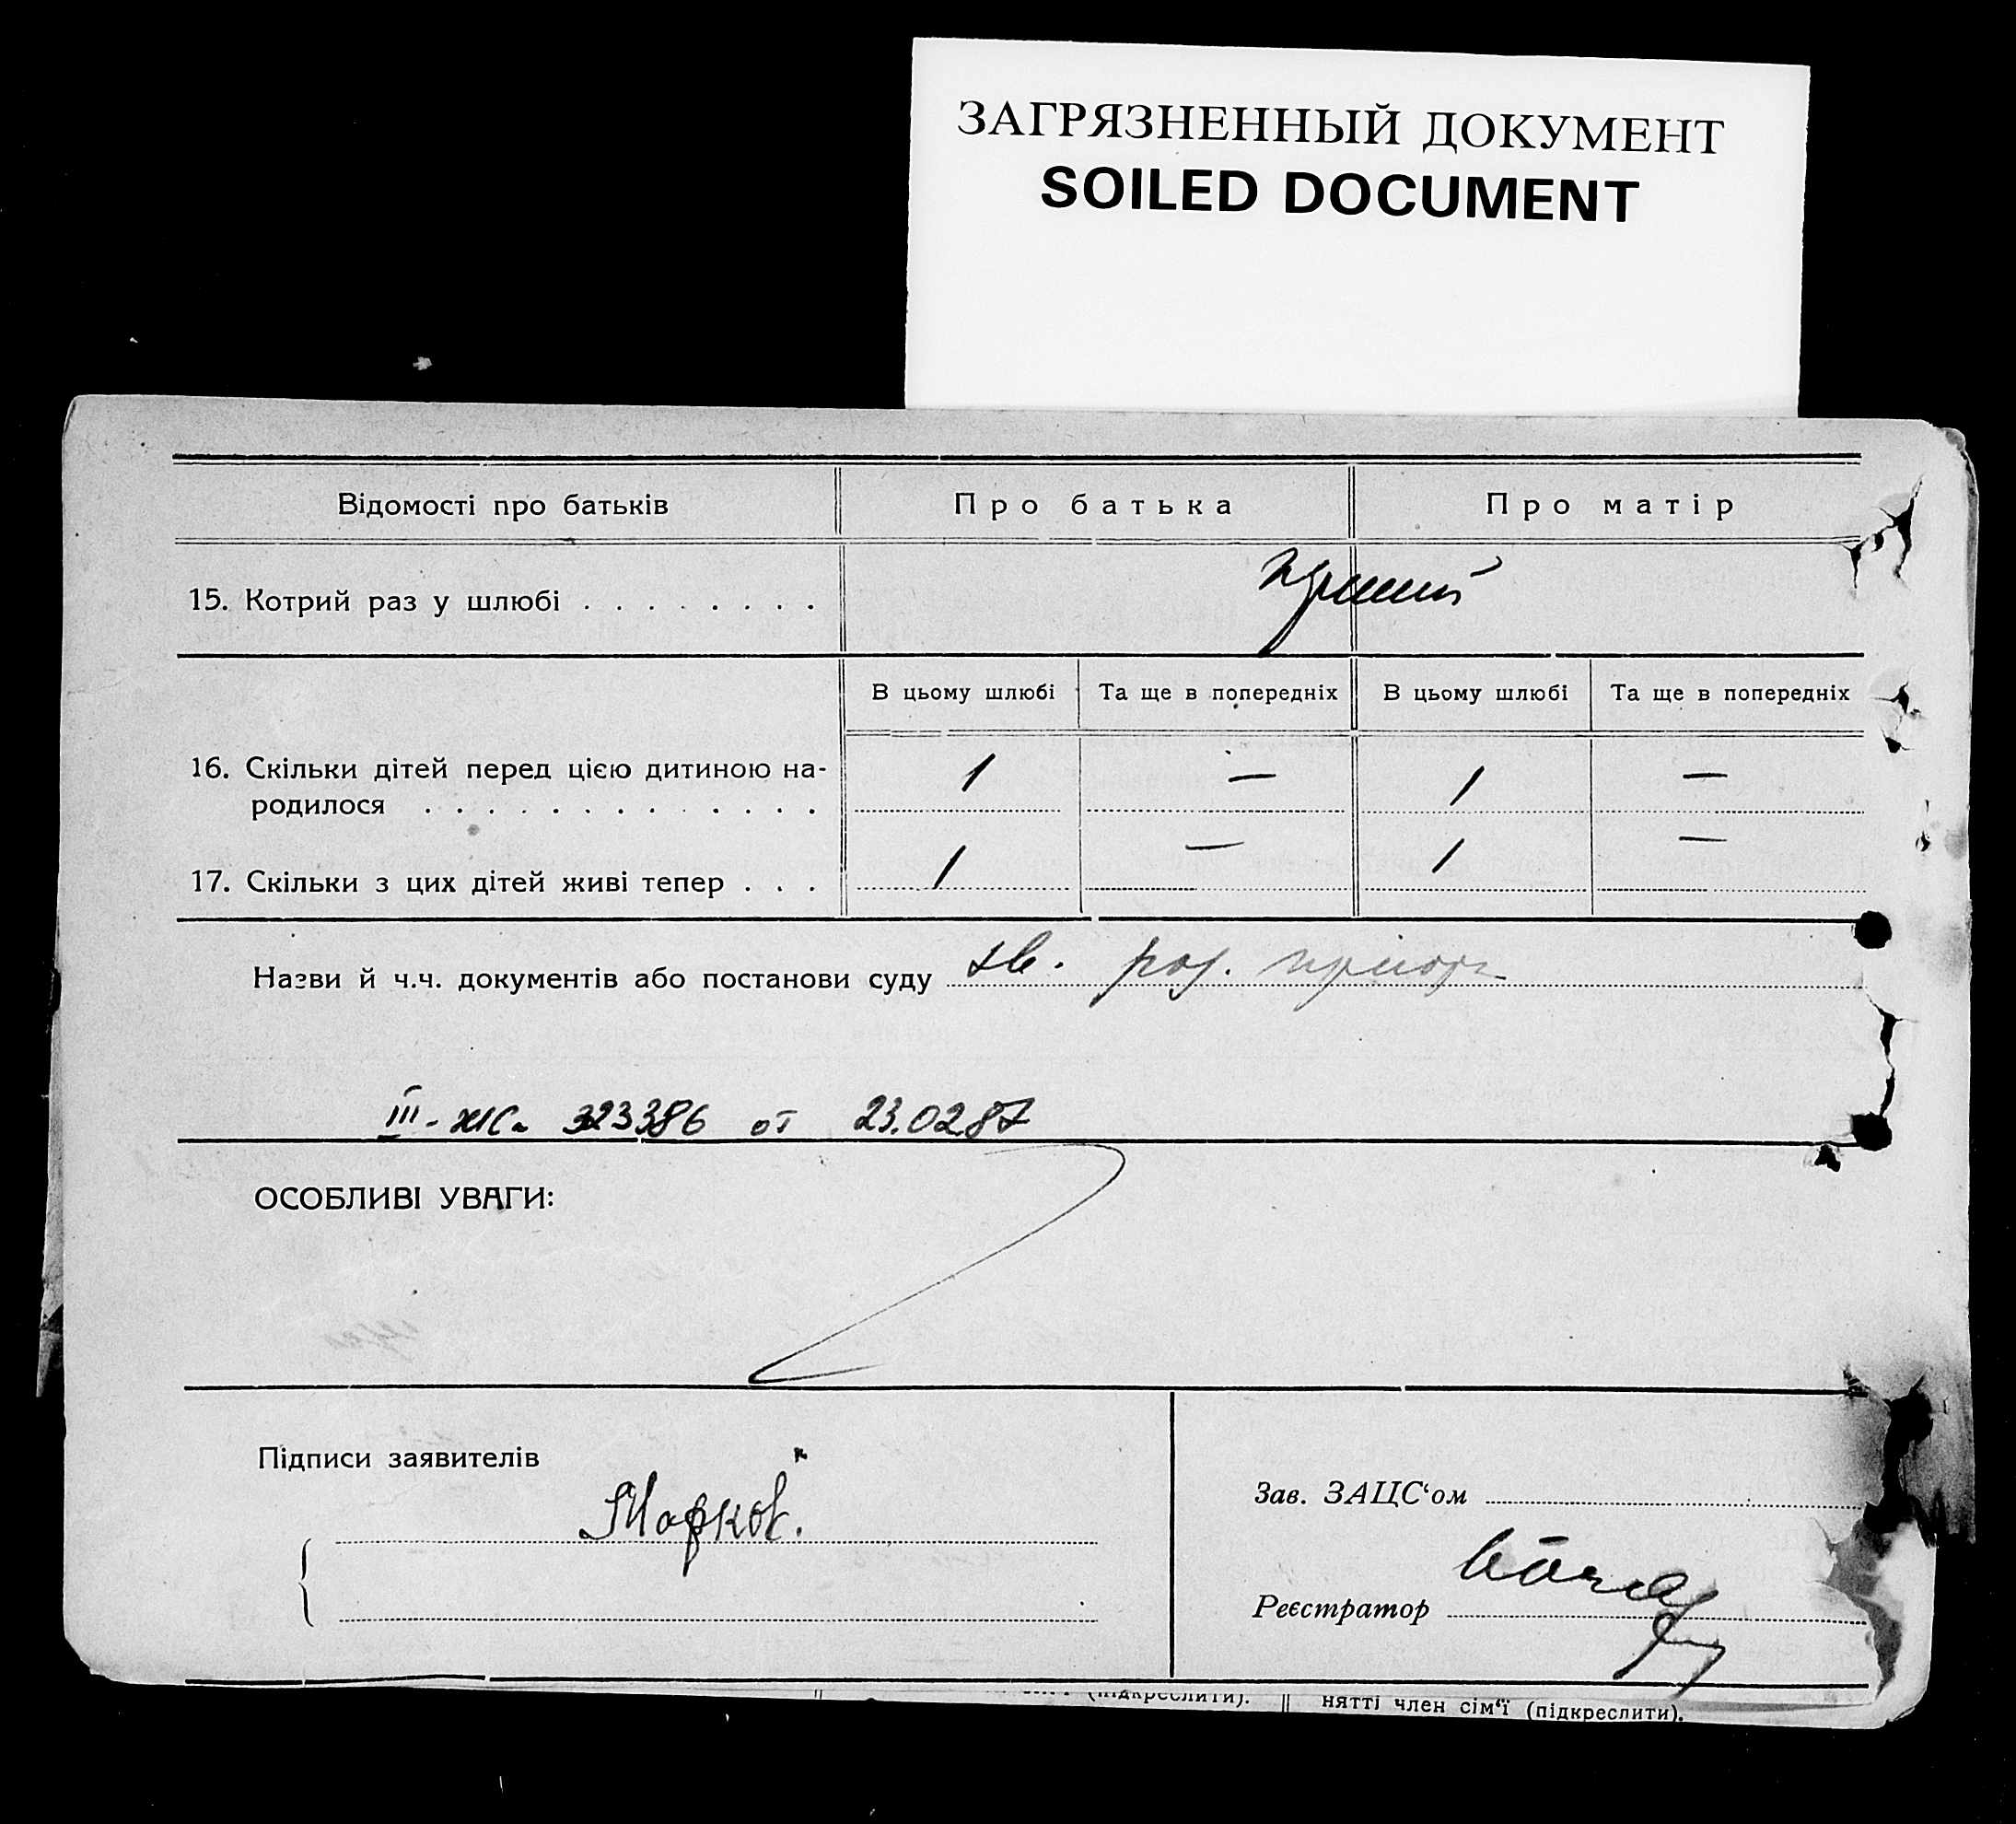 ЗАГРЯЗНЕННЫЙ ДОКУМЕНТ
SOILED DOCUMENT
Відомості про батьків Про батька Про матір
15. Котрий раз у шлюбі . . . . . . . .
В цьому шлюбі Та ще в попередніх В цьому шлюбі Та ще в попередніх
16. Скільки дітей перед цією дитиною на-
родилося . . . . . . . . . . . . . 1 — 1 —
17. Скільки з цих дітей живі тепер . . . 1 — 1 —
Назви й ч.ч. документів або постанови суду
III-ЖС 323386 от 23.02.87
ОСОБЛИВІ УВАГИ:
Підписи заявителів
Марков.
Зав. ЗАЦС‘ом
Реєстратор
(підкреслити). нятті член сім‘ї (підкреслити).